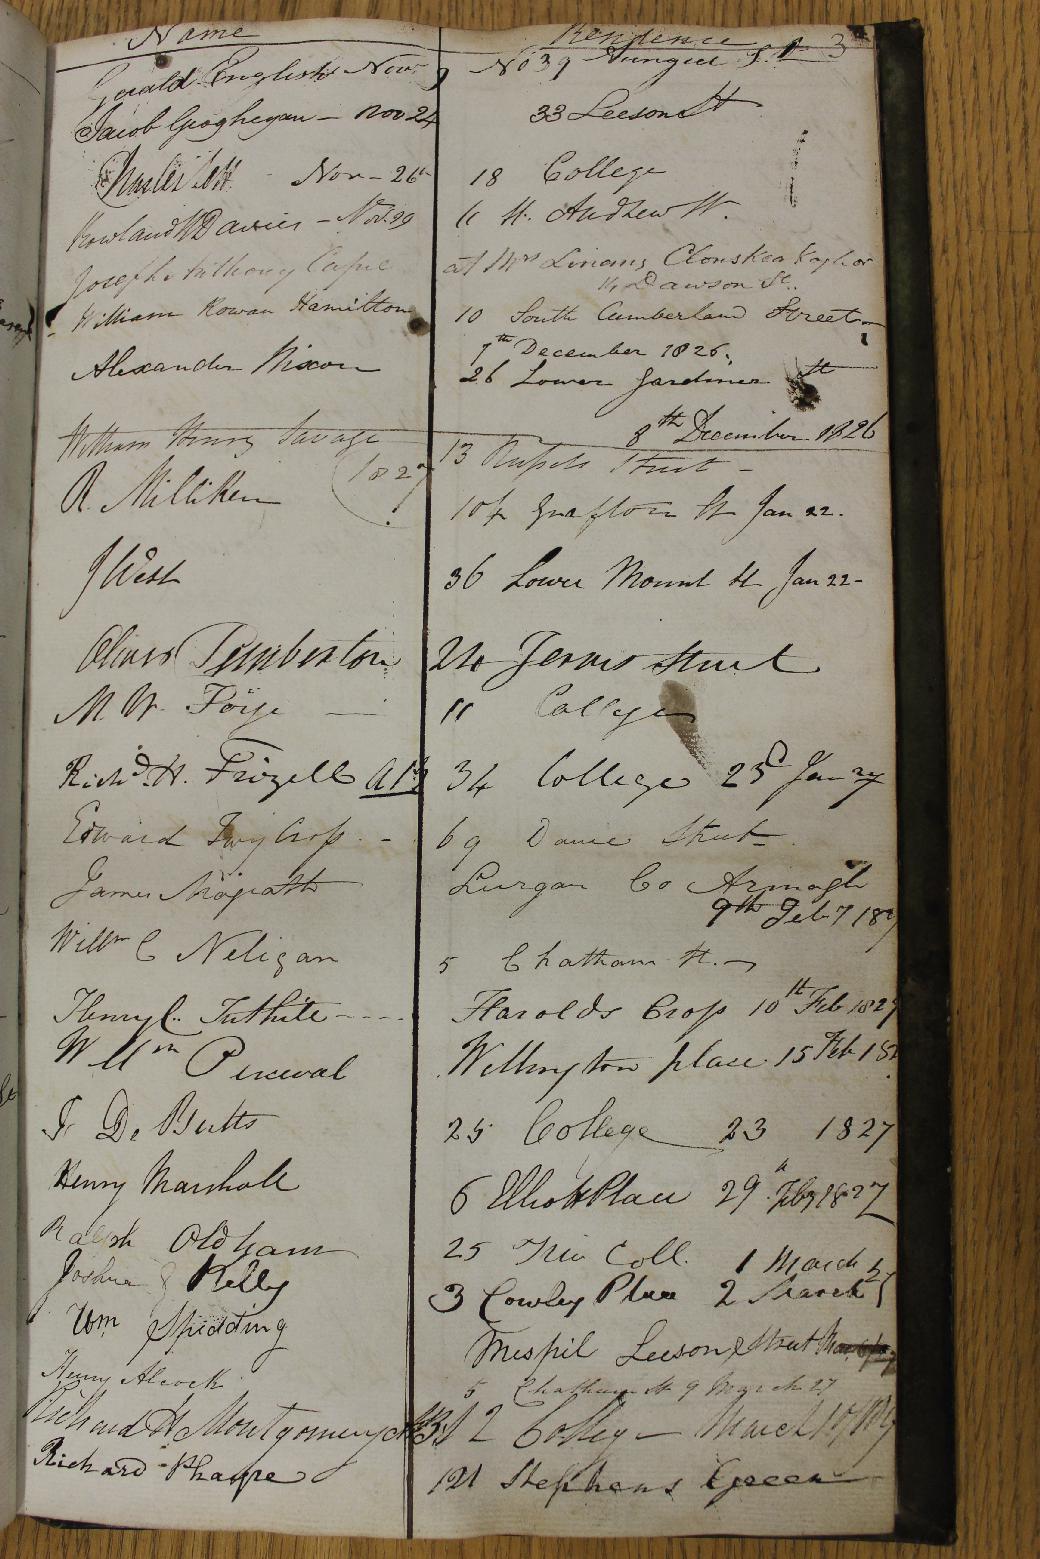 Name Residence 3
Gerald English Nov 9 No 39 Aungier St
Jacob Geoghegan - Nov 24 33 Leeson St
Charles Nov - 26th 18 College
Rowland Davies - Nov. 29 11 St. Andrew St.
Joseph Anthony at Mrs Clonskea
14 Dawson St.
William Rowan Hamilton 10 South Cumberland Street
7th December 1826.
Alexander Nixon 26 Lower Gardiner St
8th December 1826
William Henry Savage 13 Street -
R. Milliken 1827 104 Grafton St Jan 22.
J West 36 Lower Mount St Jan 22-
Oliver Pemberton 24 Jervis Street
M W. 11 College
Richd. H. Frizell 34 College 23d Jan 27
Edward Twycross - 69 Dame Street
James Magrath Lurgan Co Armagh
9th Feb 7 182
Willm C Neligan 5 Chatham St. -
Henry C. Tuthile ---- Harolds Cross 10th Feb 1827
Willm Perceval Wellington place 15 Feb 182
De Butts 25 College 23 1827
Henry Marshall 6 Elliott Place 29th Feby 1827
Ralph Oldham 25 Trin Coll. 1 March 27
Joshua Kelly 3 Cowley Place 2 March
Wm Spidding Mespil Leeson Street
Henry Alcock 5 Chatham St 9 March 27
Richard H Montgomery 2 College March 10
Richard Pharpe 121 Stephens Green